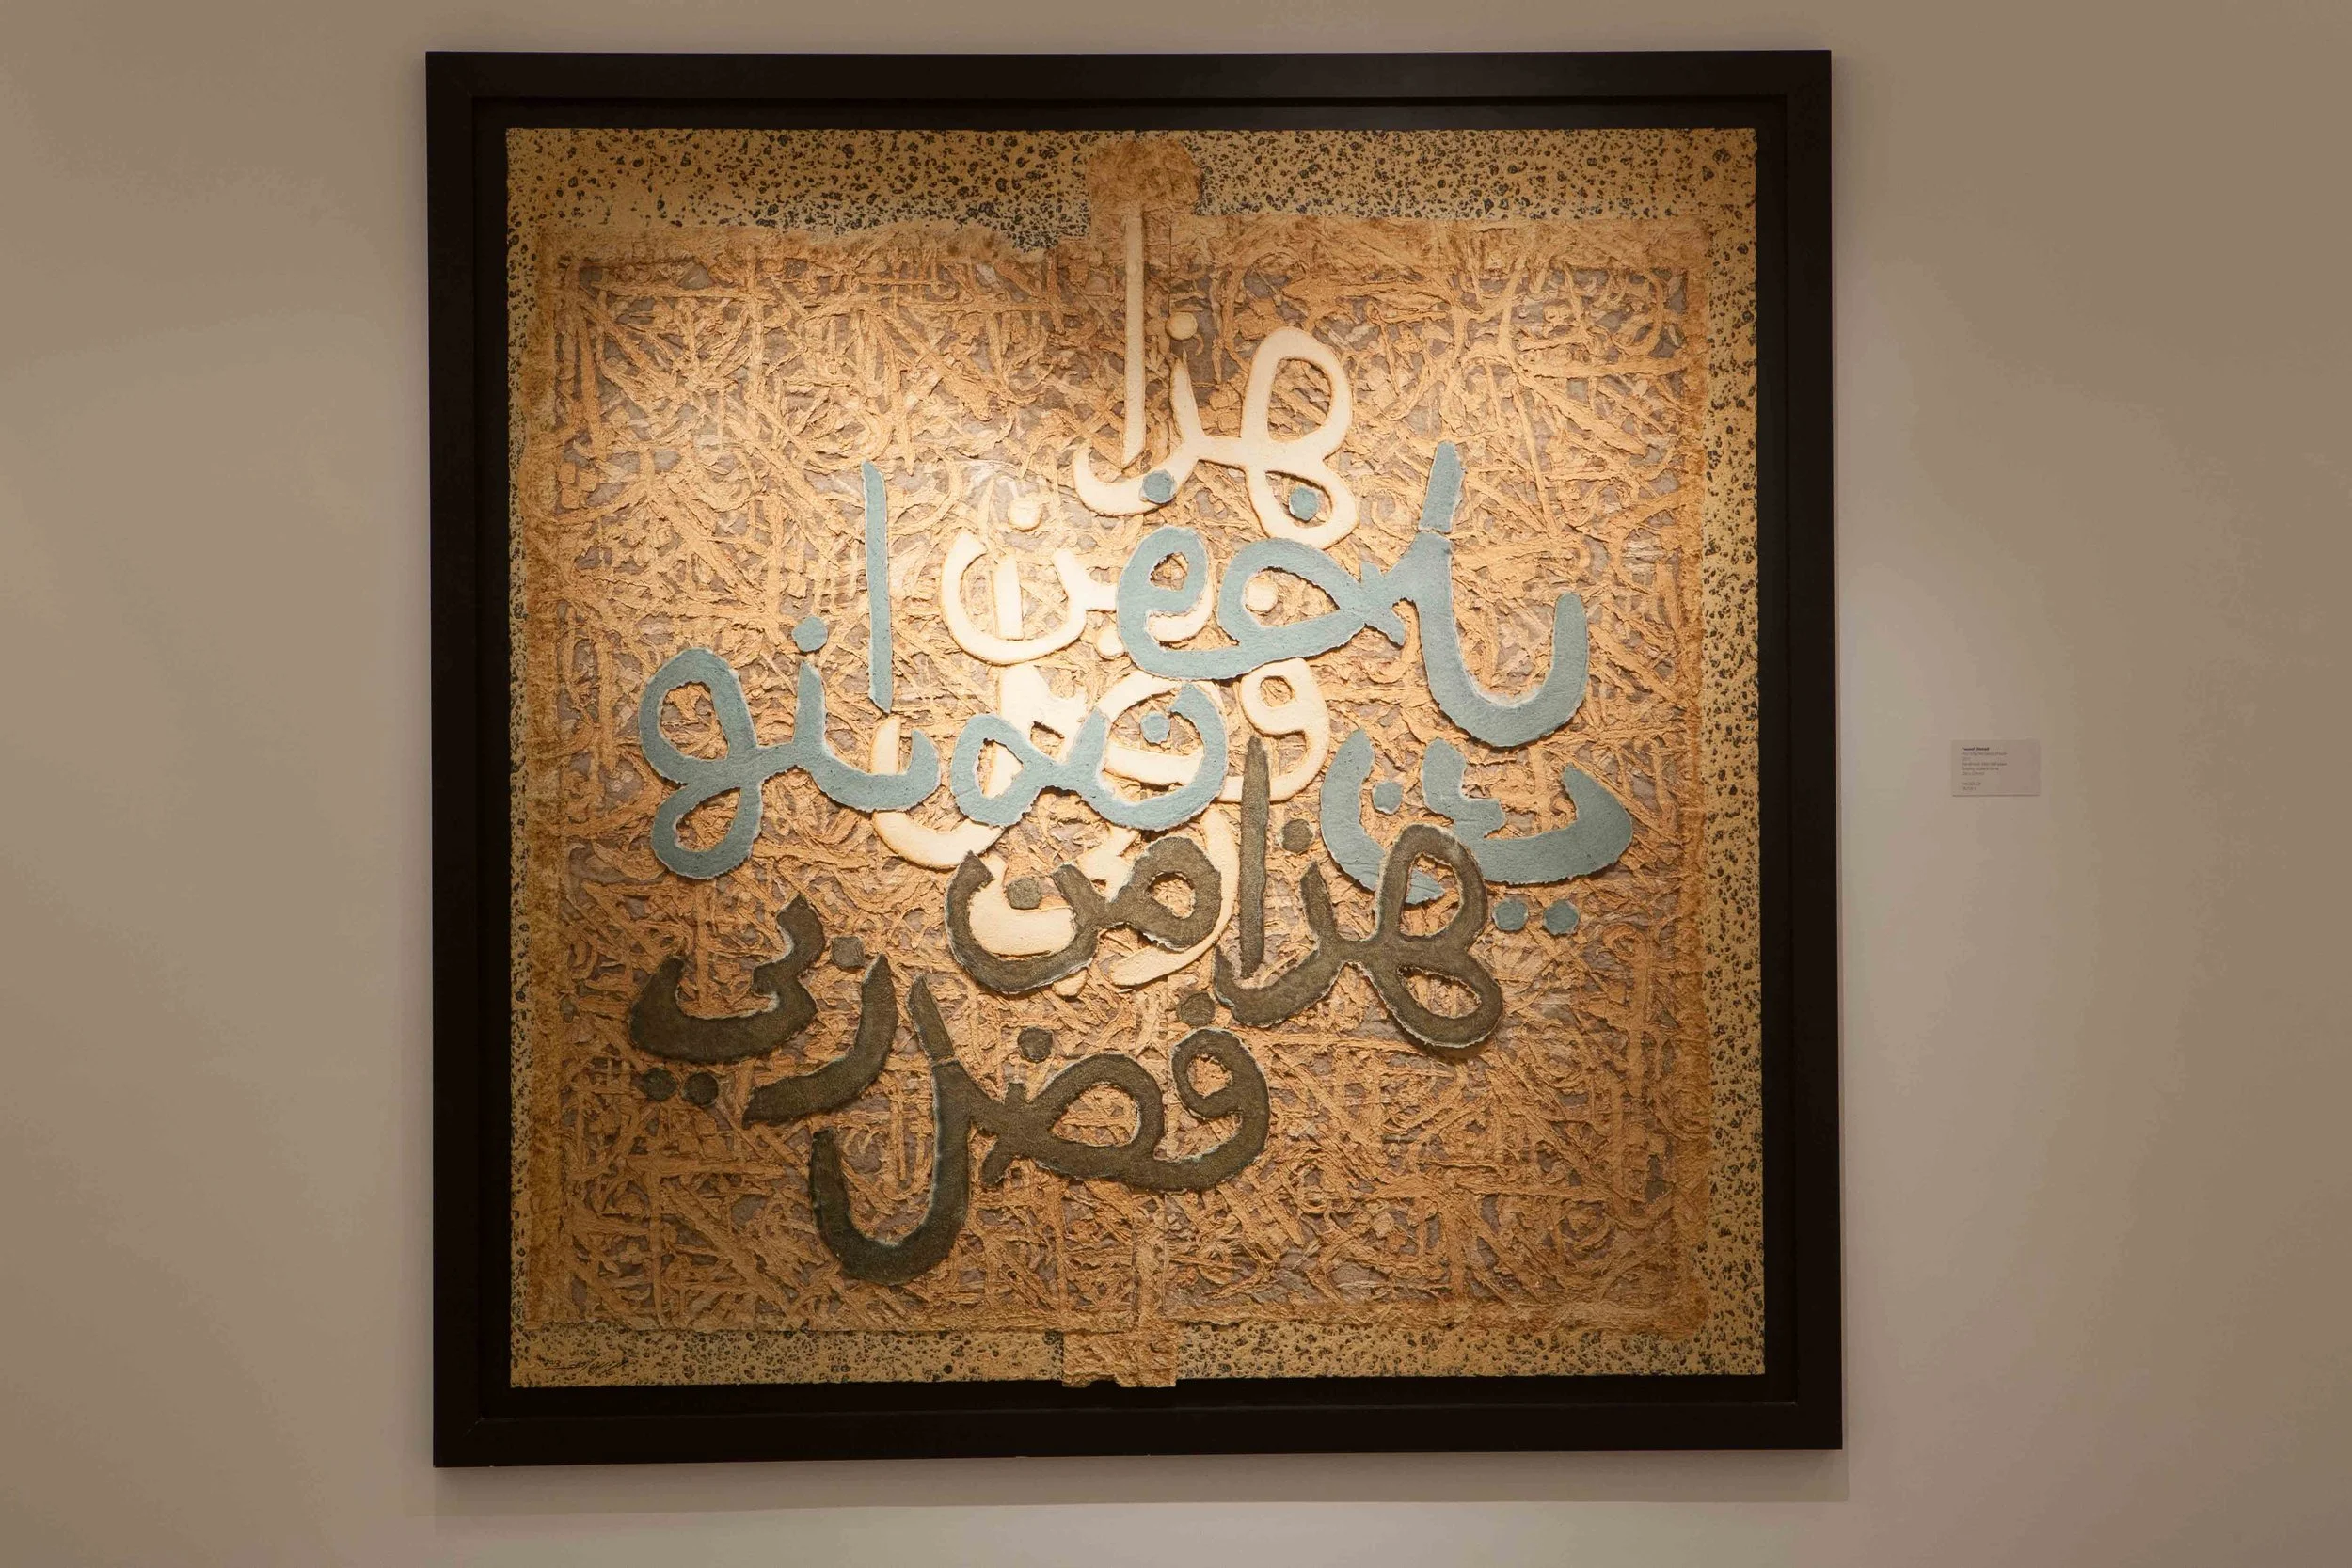 هذا
من
فضل
ربي
هذا من
فضل ربي
هذا من
فضل ربي
Yousef Ahmad